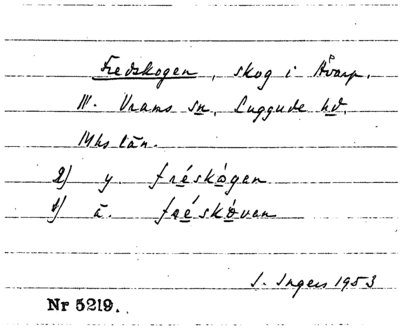 Fredskogen, skog i Åvarp,
N. Vrams sn, Luggude hd,
Mhs län.
2) y. fréskógen
1) ä. fréskóven
I. Ingers 1953
Nr 5219.